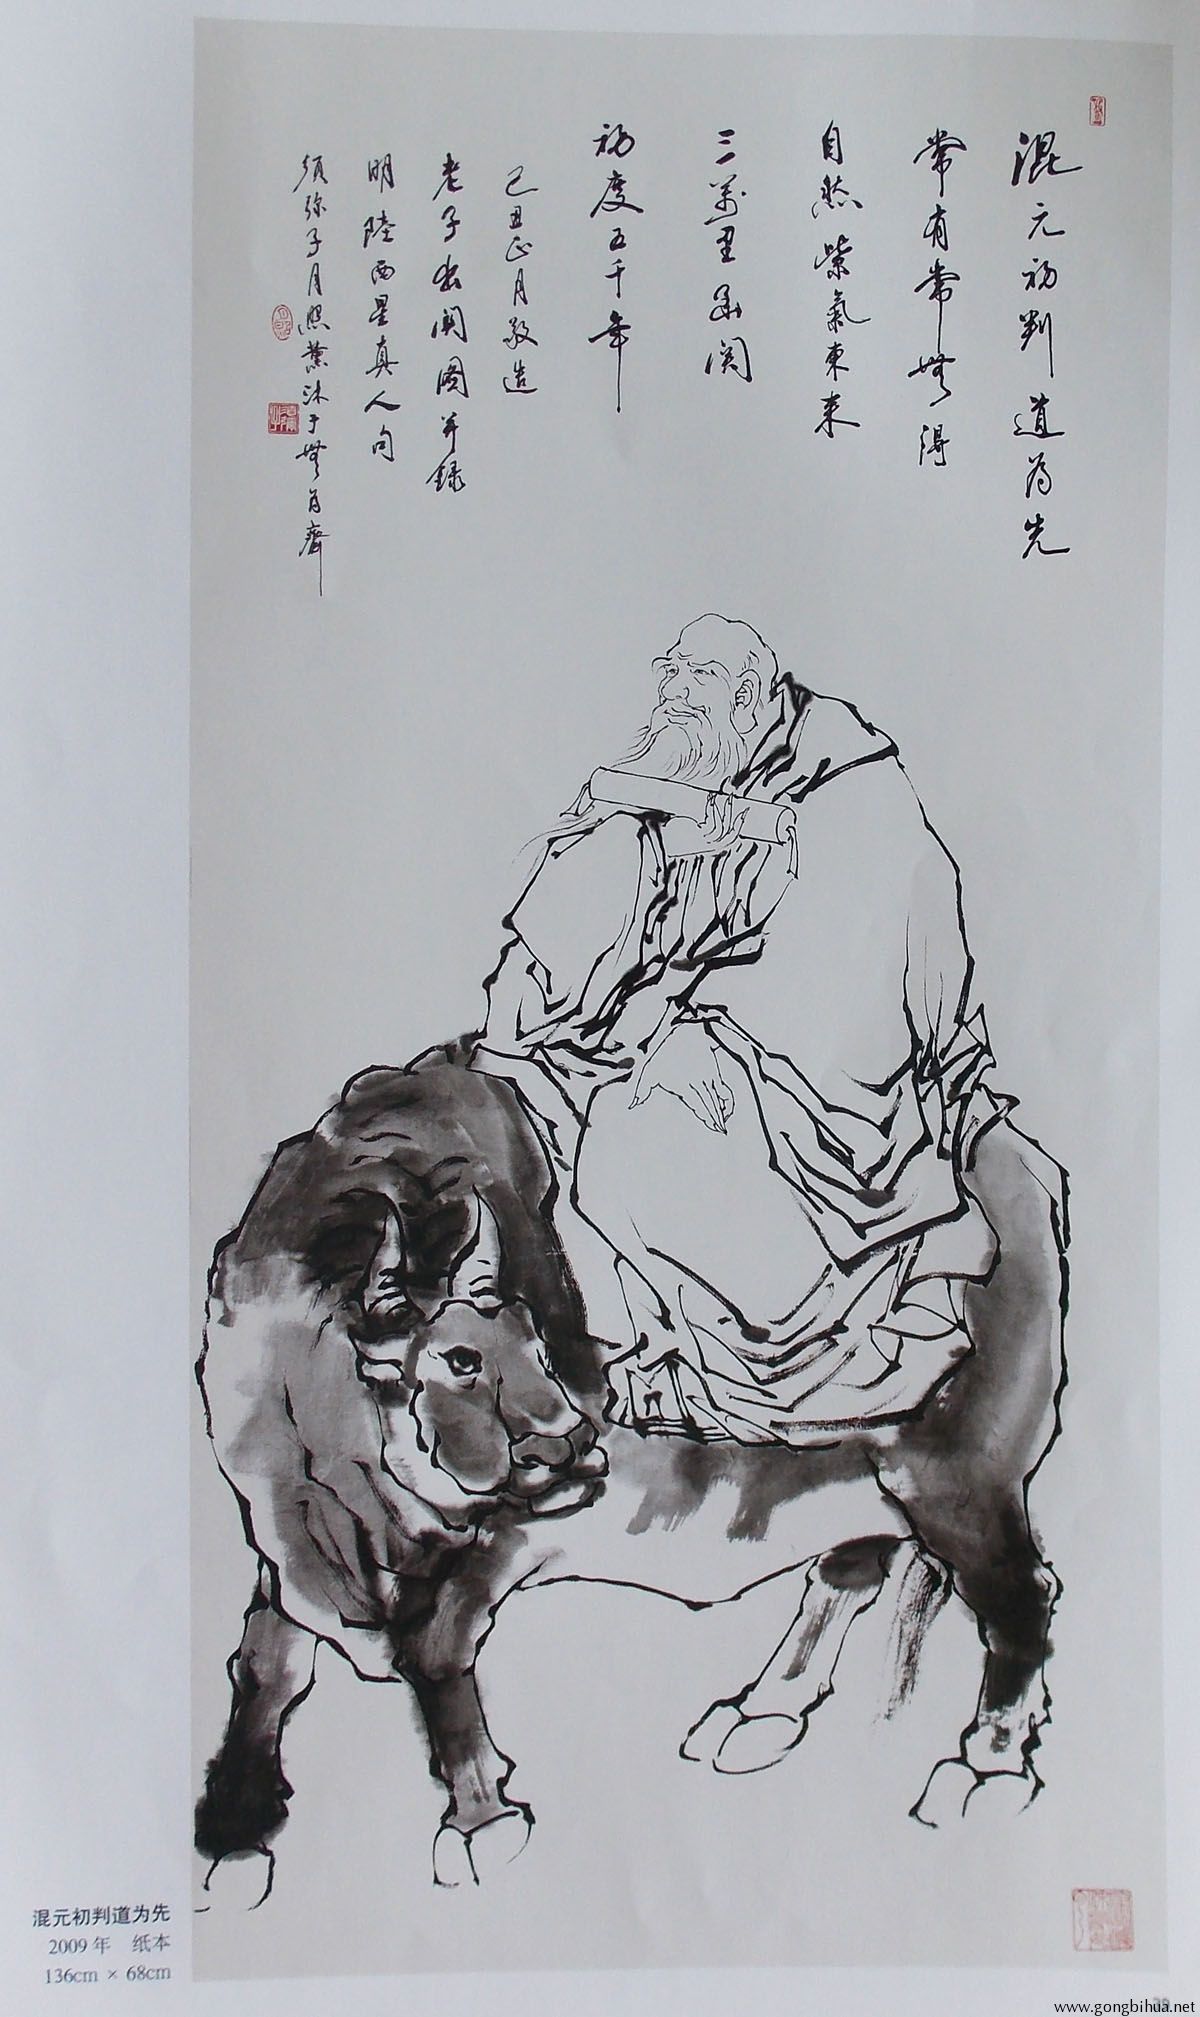 混元初判道為先
常有常無得
自然紫氣東来
三萬里函関
初度五千年
己丑正月敬造
老子出関圖並録
明陸西星真人句
須弥子月照薰沐于無為齋
混元初判道为先
2009年 纸本
136cm × 68cm
39
www.gongbihua.net